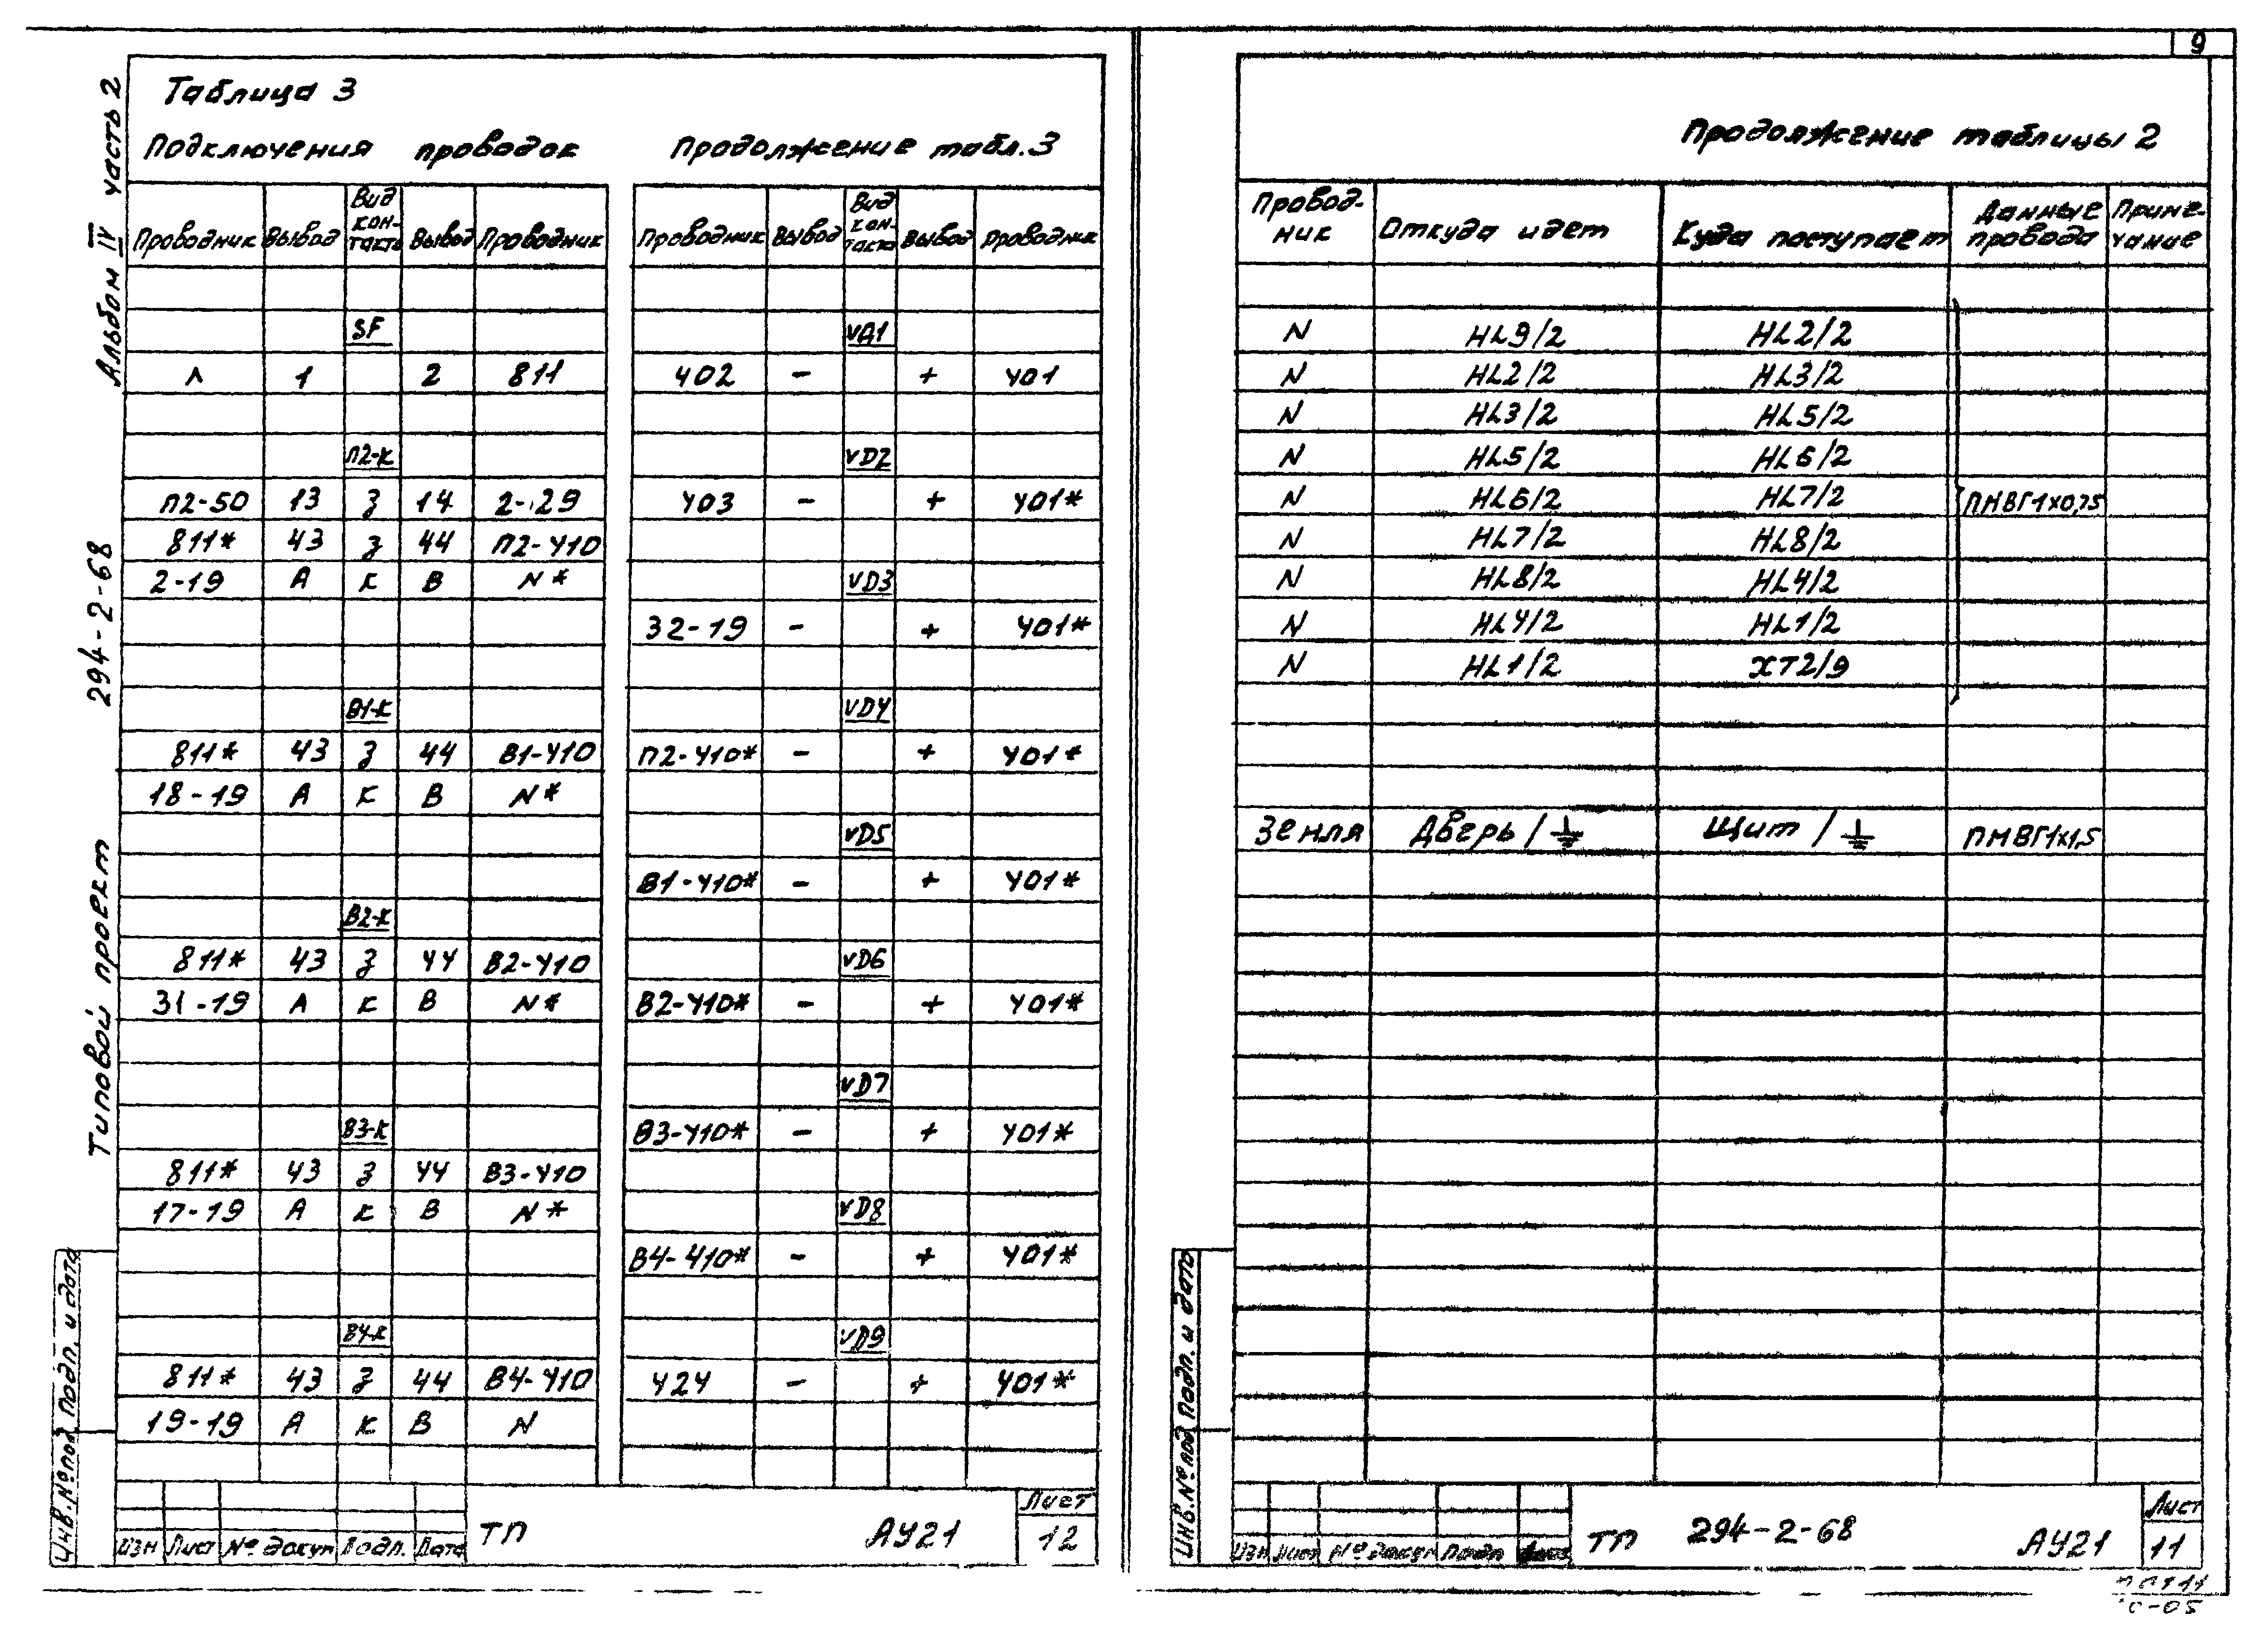 9
Альбом IV часть 2
294-2-68
Типовой проект
Инв.№под. Подп. и дата
Таблица 3
Подключения проводок
Проводник Вывод Вид кон-такта Вывод Проводник
SF
Л 1 2 811
П2-К
П2-50 13 З 14 2-29
811* 43 З 44 П2-410
2-19 А К В N*
В1-К
811* 43 З 44 В1-410
18-19 А К В N*
В2-К
811* 43 З 44 В2-410
31-19 А К В N*
В3-К
811* 43 З 44 В3-410
17-19 А К В N*
В4-К
811* 43 З 44 В4-410
19-19 А К В N
Продолжение табл.3
Проводник Вывод Вид кон-такта Вывод Проводник
VД1
402 - + 401
VD2
403 - + 401*
VD3
32-19 - + 401*
VD4
П2-410* - + 401*
VD5
В1-410* - + 401*
VD6
В2-410* - + 401*
VD7
В3-410* - + 401*
VD8
В4-410* - + 401*
VD9
424 - + 401*
Изн Лист № докум Подп. Дата
ТП АУ21
Лист
12
Продолжение таблицы 2
Провод-ник Откуда идет Куда поступает Данные провода Приме-чание
N HL9/2 HL2/2
N HL2/2 HL3/2
N HL3/2 HL5/2
N HL5/2 HL6/2
N HL6/2 HL7/2 ПМВГ1х0,75
N HL7/2 HL8/2
N HL8/2 HL4/2
N HL4/2 HL1/2
N HL1/2 XT2/9
Земля Дверь/⏚ Щит/⏚ ПМВГ1х1,5
Инв.№под Подп. и дата
Изн Лист № докум Подп
ТП 294-2-68 АУ21
Лист
11